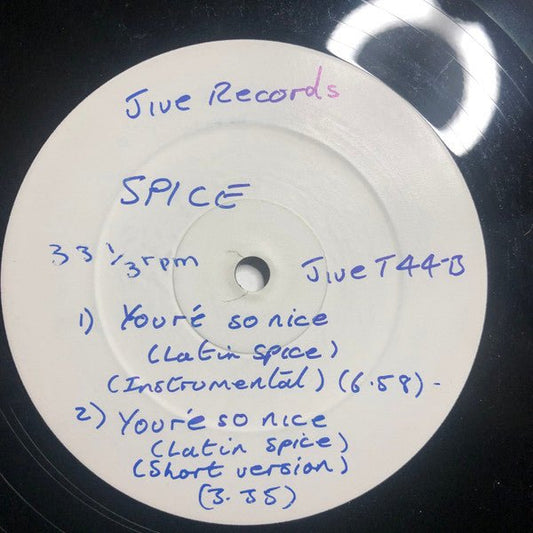 Jive Records
SPICE
33 1/3 rpm
Jive T44-B
1) You're so nice
(Latin Spice)
(Instrumental) (6.58) -
2) You're so nice
(Latin Spice)
(Short version)
(3.55)